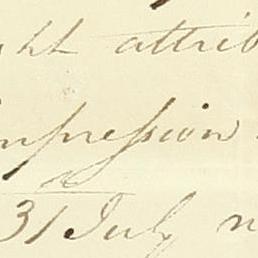 ght attrib
impression
31 July n